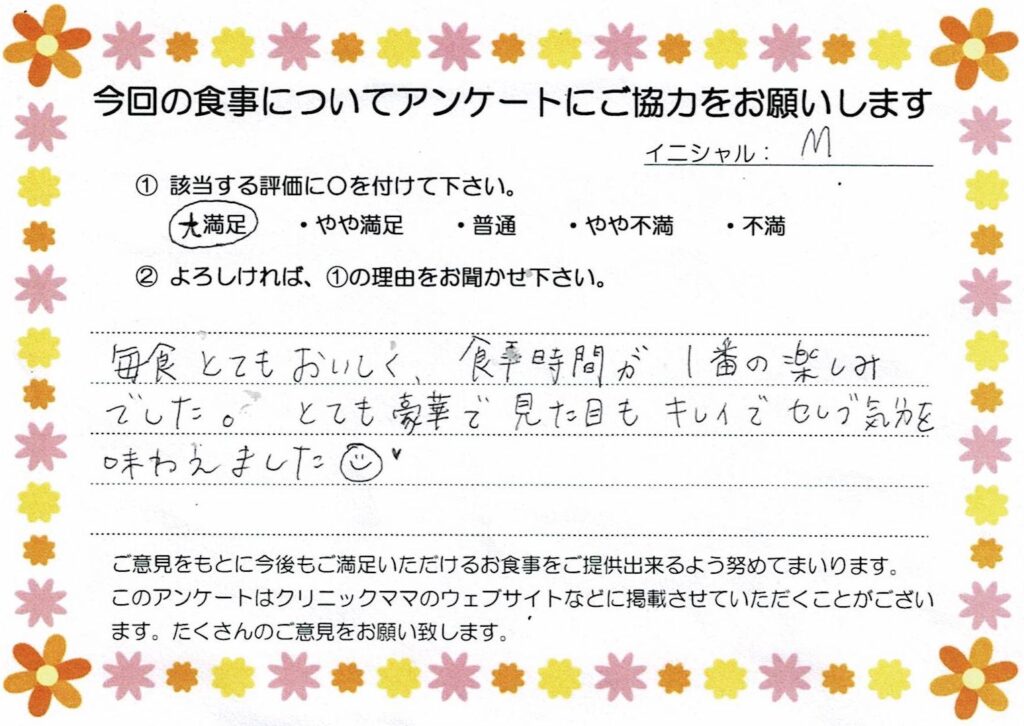 今回の食事についてアンケートにご協力をお願いします
イニシャル: M
① 該当する評価に〇を付けて下さい。
大満足 ・やや満足 ・普通 ・やや不満 ・不満
② よろしければ、①の理由をお聞かせ下さい。
毎食とてもおいしく、食事時間が1番の楽しみ
でした。とても豪華で見た目もキレイでセレブ気分を
味わえました
ご意見をもとに今後もご満足いただけるお食事をご提供出来るよう努めてまいります。
このアンケートはクリニックママのウェブサイトなどに掲載させていただくことがござい
ます。たくさんのご意見をお願い致します。